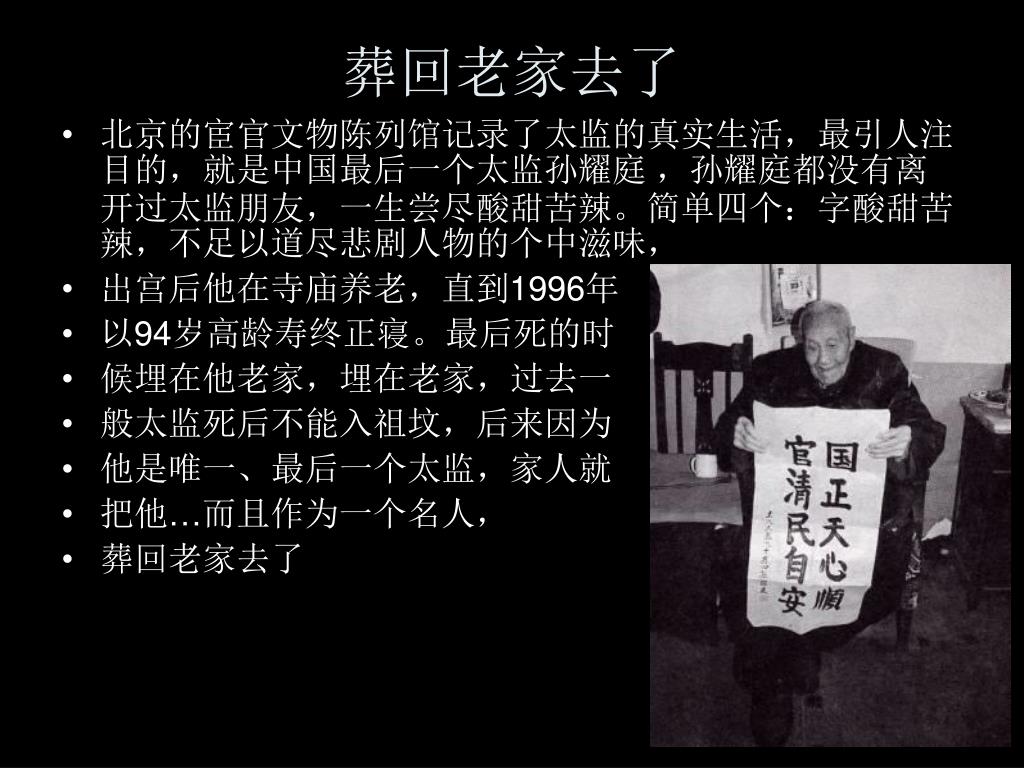 葬回老家去了
• 北京的宦官文物陈列馆记录了太监的真实生活，最引人注
目的，就是中国最后一个太监孙耀庭 ，孙耀庭都没有离
开过太监朋友，一生尝尽酸甜苦辣。简单四个：字酸甜苦
辣，不足以道尽悲剧人物的个中滋味，
• 出宫后他在寺庙养老，直到1996年
• 以94岁高龄寿终正寝。最后死的时
• 候埋在他老家，埋在老家，过去一
• 般太监死后不能入祖坟，后来因为
• 他是唯一、最后一个太监，家人就
• 把他…而且作为一个名人，
• 葬回老家去了
国正天心順
官清民自安